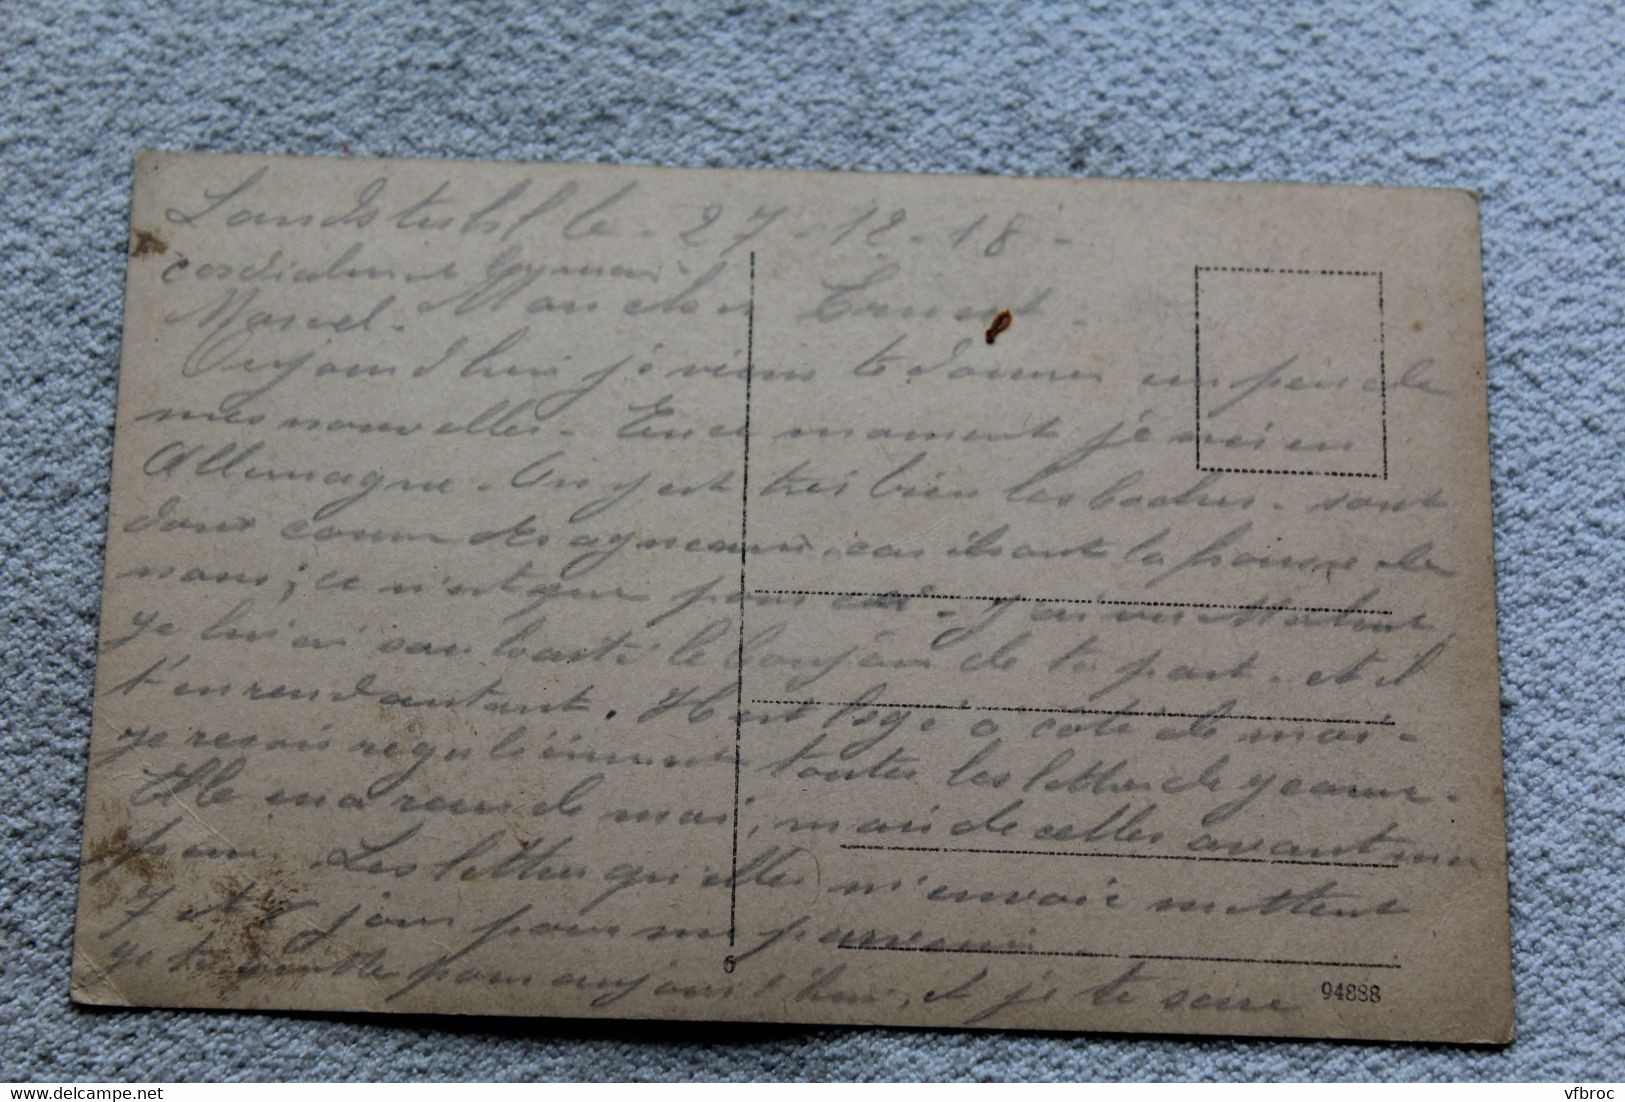 Landstuhl le - 27 - 12 - 18 -
cordialement
Marcel. Mon cher Ernest -
Aujourd'hui je viens te donner un peu de
mes nouvelles - En ce moment je voi en
Allemagne - On y est très bien les boches - sont
doux comme des agneaux, car ils ont la frousse de
nous ; ce n'est que pour - J'ai vu
je lui ai souhaité le bonjour de ta part - et il
t'en rend autant. Il est logé à côté de moi -
je reçois régulièrement toutes les lettres de
Elle en a reçu de moi, mais de celles avant mon
Les lettres qu'elle m'envoie mettent
7 et 8 jours pour me parvenir -
je te quitte pour aujourd'hui, et je te serre
6
94888
delcampe.net
vfbroc